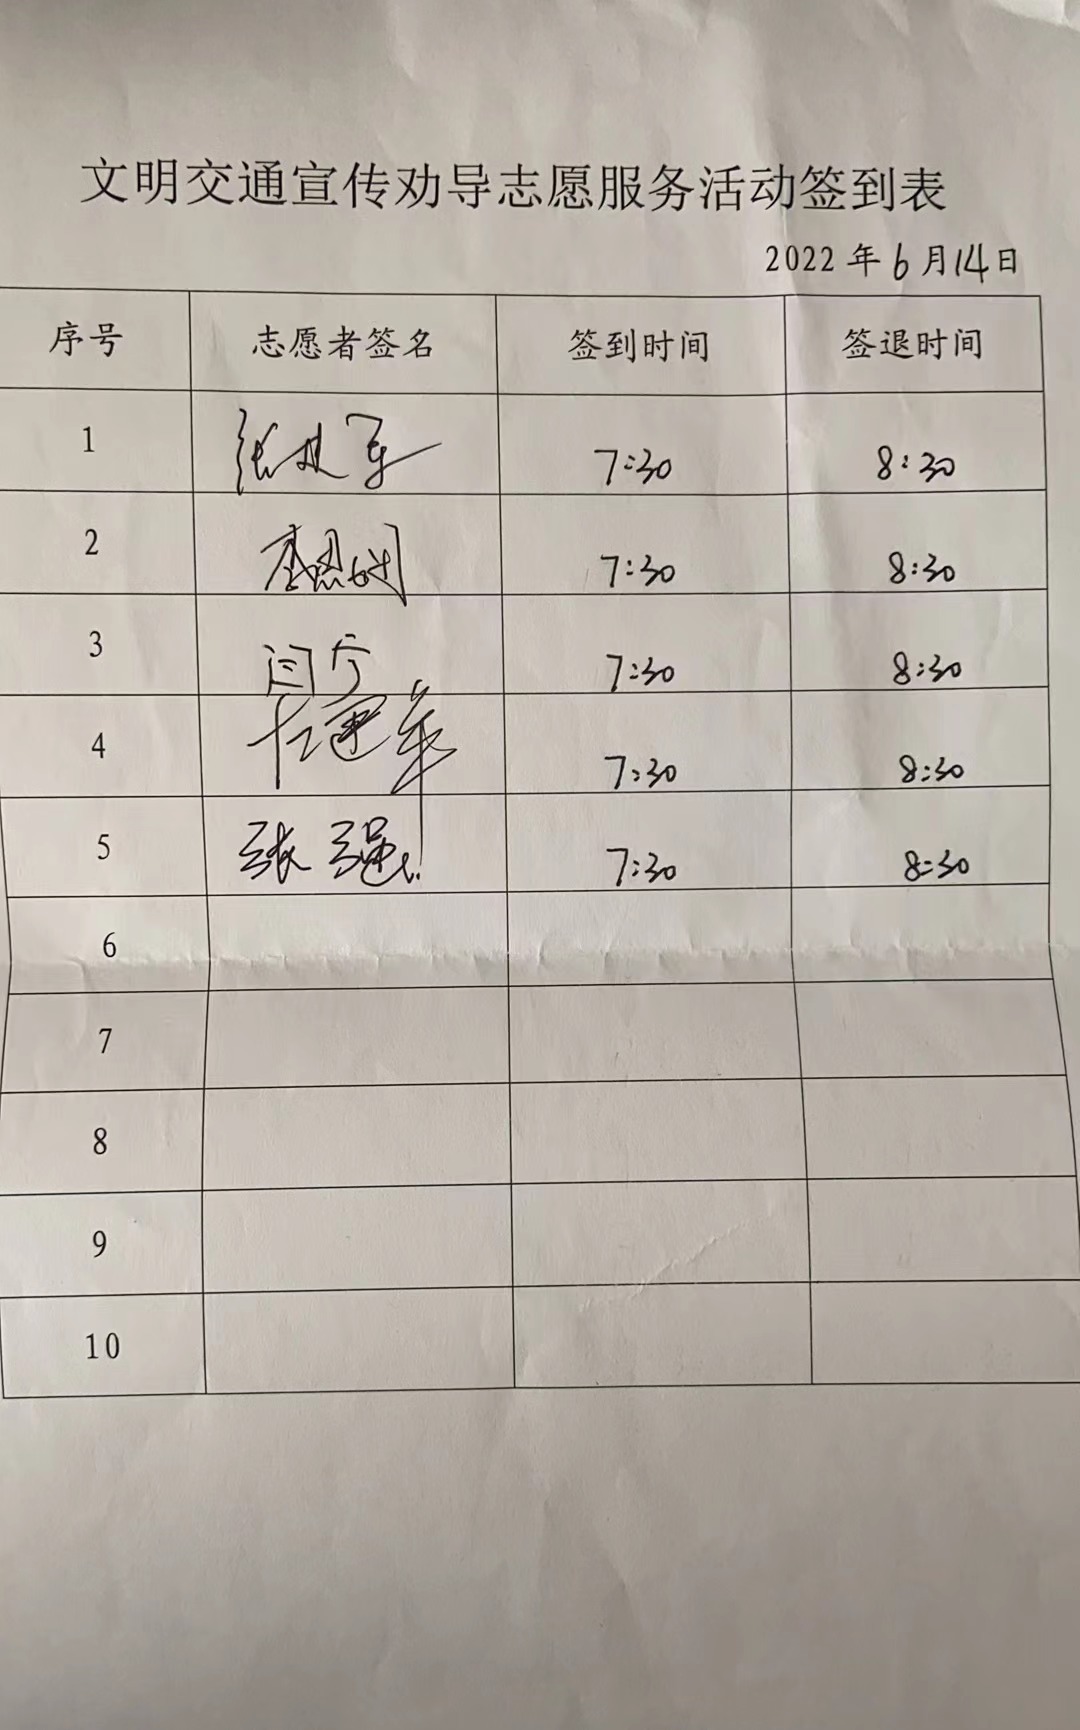 文明交通宣传劝导志愿服务活动签到表
2022 年 6 月 14 日
序号 志愿者签名 签到时间 签退时间
1 7:30 8:30
2 7:30 8:30
3 7:30 8:30
4 7:30 8:30
5 张强 7:30 8:30
6
7
8
9
10